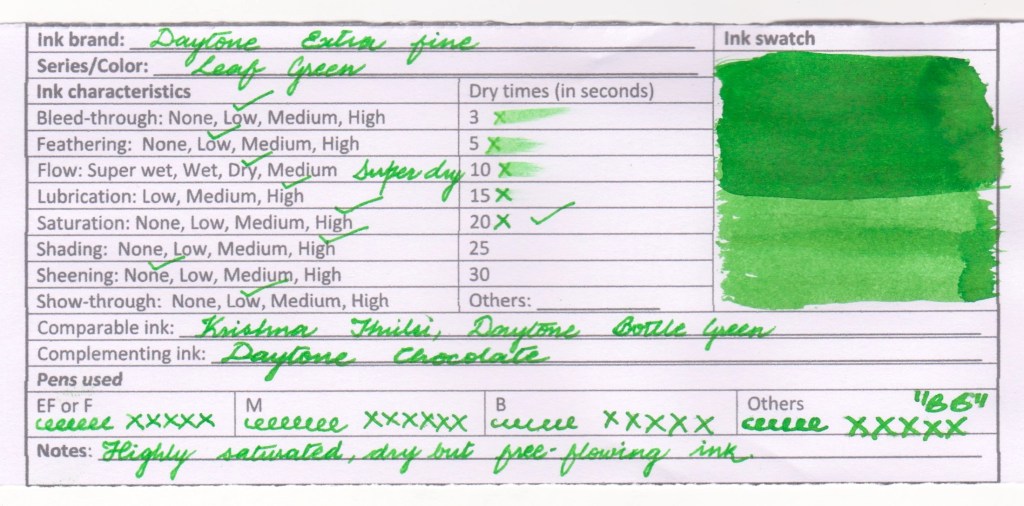 Ink brand: Daytone Extra fine
Ink swatch
Series/Color: Leaf Green
Ink characteristics
Dry times (in seconds)
Bleed-through: None, Low, Medium, High
3 x
Feathering: None, Low, Medium, High
5 x
Flow: Super wet, Wet, Dry, Medium Super dry
10 x
Lubrication: Low, Medium, High
15 x
Saturation: None, Low, Medium, High
20 x ✓
Shading: None, Low, Medium, High
25
Sheening: None, Low, Medium, High
30
Show-through: None, Low, Medium, High
Others:
Comparable ink: Krishna Thulsi, Daytone Bottle Green
Complementing ink: Daytone Chocolate
Pens used
EF or F
xxxxx
M
xxxxxx
B
xxxxx
Others "BB"
xxxxx
Notes: Highly saturated, dry but free-flowing ink.